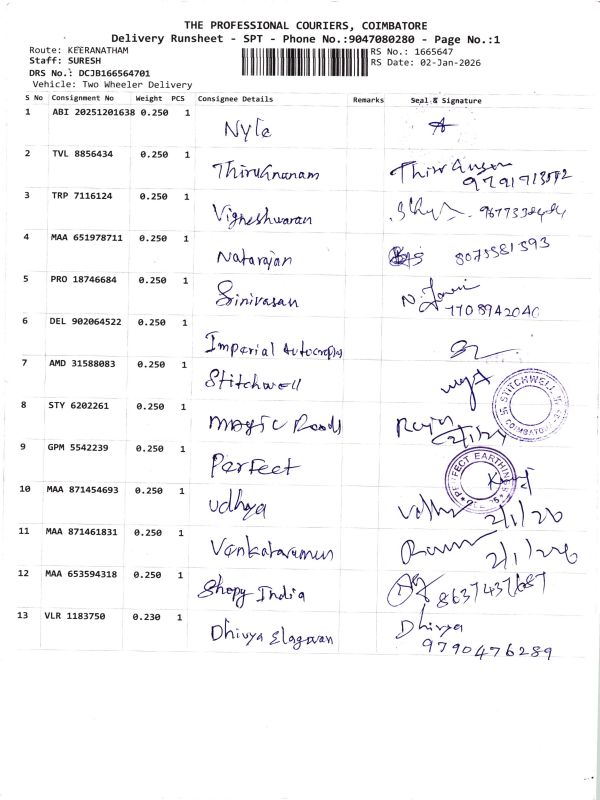 THE PROFESSIONAL COURIERS, COIMBATORE
Delivery Runsheet - SPT - Phone No.:9047080280 - Page No.:1
Route: KEERANATHAM
RS No.: 1665647
Staff: SURESH
RS Date: 02-Jan-2026
DRS No.: DCJB166564701
Vehicle: Two Wheeler Delivery
S No Consignment No Weight PCS Consignee Details Remarks Seal & Signature
1 ABI 20251201638 0.250 1 Nyle
2 TVL 8856434 0.250 1 Thirugnanam
3 TRP 7116124 0.250 1 Vigneshwaran
4 MAA 651978711 0.250 1 Natarajan 8073581593
5 PRO 18746684 0.250 1 Srinivasan
7708942040
6 DEL 902064522 0.250 1 Imperial
7 AMD 31588083 0.250 1 Stitchwell
STITCHWELL
COIMBATORE
8 STY 6202261 0.250 1 Magic Roads
9 GPM 5542239 0.250 1 Perfect
PERFECT EARTHING
10 MAA 871454693 0.250 1 Udhya
2/1/26
11 MAA 871461831 0.250 1 Venkataraman
2/1/226
12 MAA 653594318 0.250 1 Shopy India
8637437687
13 VLR 1183750 0.230 1 Dhivya Elagovan Dhivya
9790476289